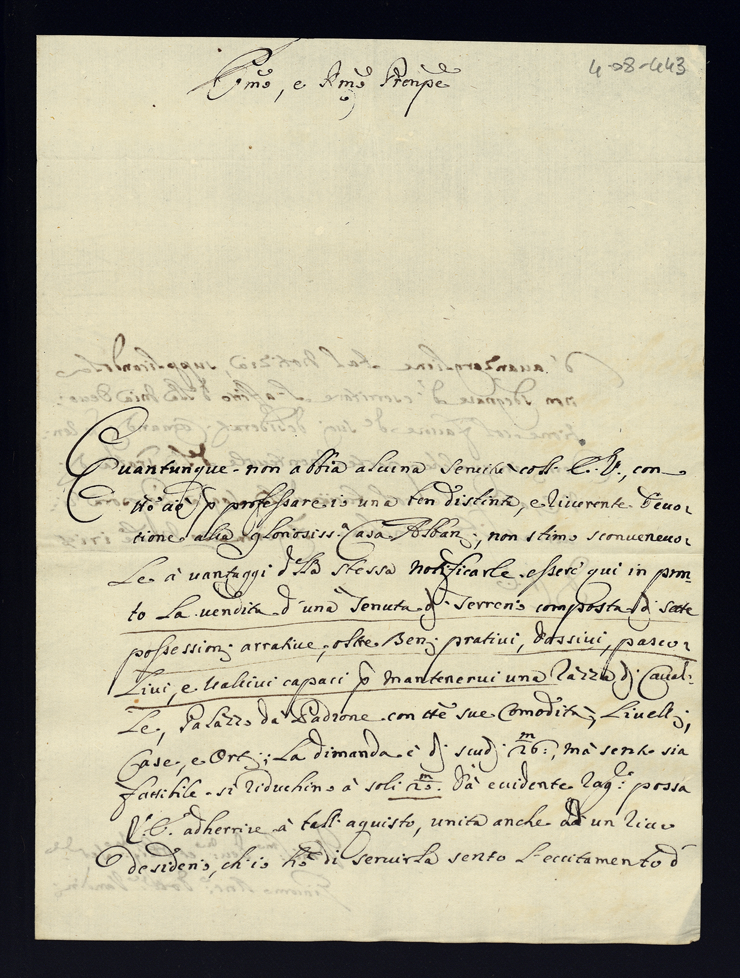 4-08-443
Emo, e Rmo Prenpe
Quantunque non abbia alcuna servitù coll' E. V., con
tto ciò p professare io una ben distinta, e riverente devo-
tione alla gloriosiss.a Casa Alban; non stimo sconvenevo-
le à vantaggi della stessa notificarle essere qui in pron-
to la vendita d'una Tenuta di Terreno composta di sette
possessioni arrative, oltre Beni prativi, Vassivi, pasco-
livi, e Vallivi capaci p mantenervi una razza di Caval-
le, Palazzo dà Padrone con tte sue Comodità, Livelli,
Case, e Orti; La dimanda è di scudi 26m:, mà sento sia
fattibile si riduchino à soli 20m. Dà evidente rag.e possa
V. E. adherrire à tall' aquisto, unita anche ad un vivo
desiderio, ch'io hò di servirla sento l'eccitamento d'